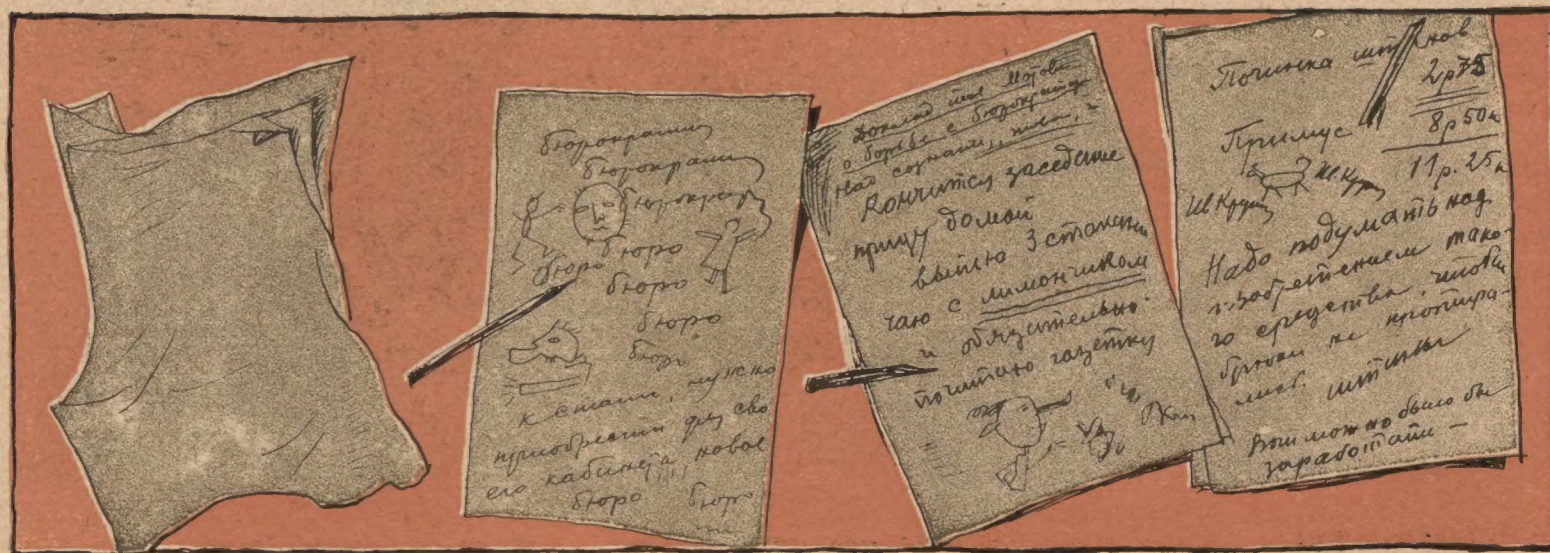 бюрократизм
бюрократизм
бюрократ
бюро
бюро
бюро
бюро
бюро
кстати, нужно
приобрести для сво
его кабинета новое
бюро бюро
Доклад тов
о борьбе с бюрократ
Над сознани
Кончится заседание
приду домой
выпью 3 стакана
чаю с лимончиком
и обязательно
почитаю газетку
Починка штанов
2р75
Примус 8р50к
11р.25к
Ив Круг Ив Круг
Надо подумать над
изобретением тако-
го средства, чтобы
брюки не протира-
лись. штаны
Вот можно было бы
заработать —